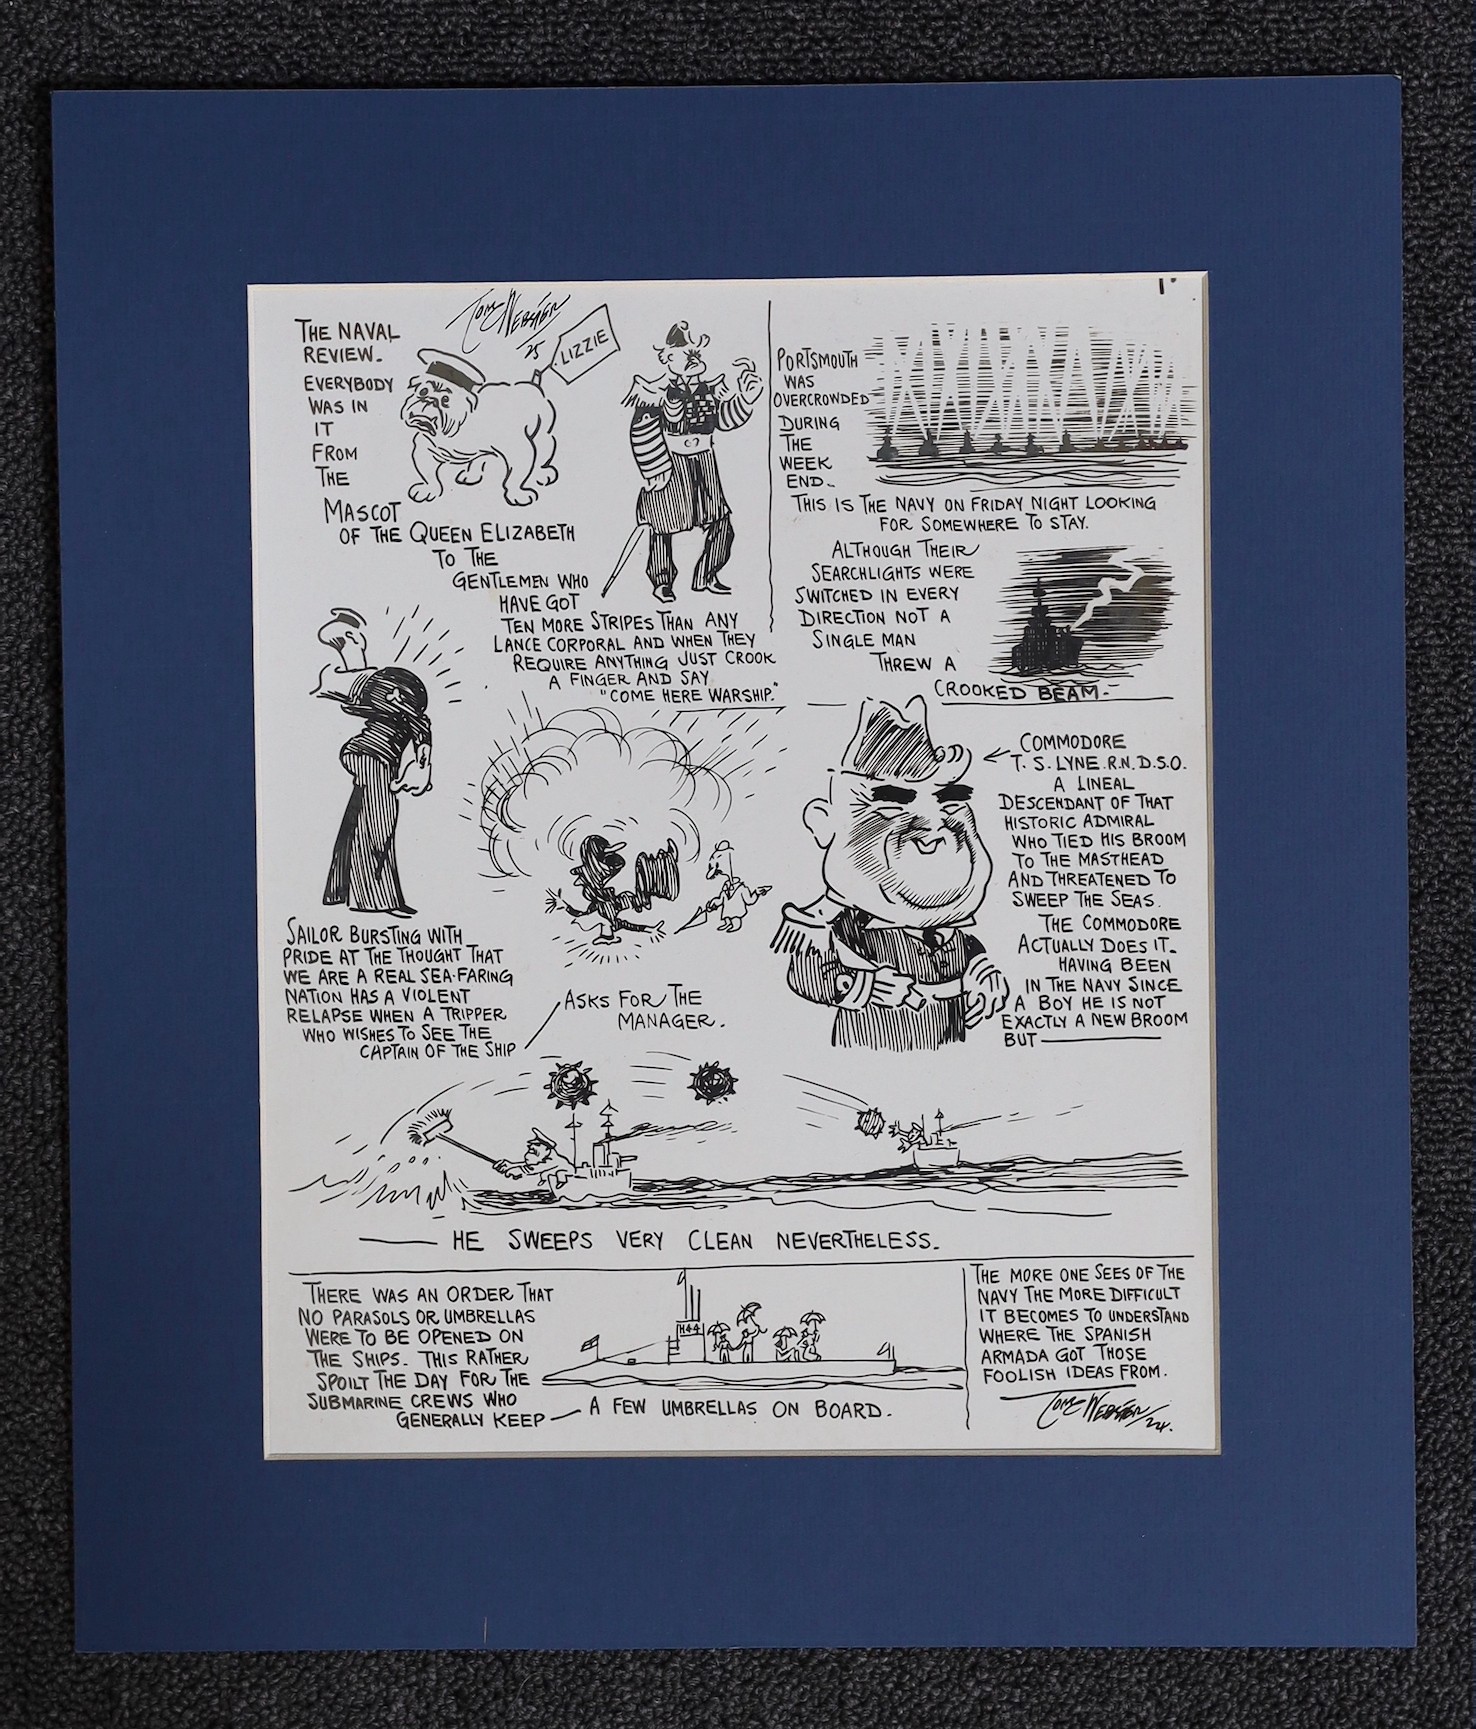 Tom Webster
25
LIZZIE
THE NAVAL
REVIEW.
EVERYBODY
WAS IN
IT
FROM
THE
MASCOT
OF THE QUEEN ELIZABETH
TO THE
GENTLEMEN WHO
HAVE GOT
TEN MORE STRIPES THAN ANY
LANCE CORPORAL AND WHEN THEY
REQUIRE ANYTHING JUST CROOK
A FINGER AND SAY
"COME HERE WARSHIP."
PORTSMOUTH
WAS
OVERCROWDED
DURING
THE
WEEK
END.
THIS IS THE NAVY ON FRIDAY NIGHT LOOKING
FOR SOMEWHERE TO STAY.
ALTHOUGH THEIR
SEARCHLIGHTS WERE
SWITCHED IN EVERY
DIRECTION NOT A
SINGLE MAN
THREW A
CROOKED BEAM.
SAILOR BURSTING WITH
PRIDE AT THE THOUGHT THAT
WE ARE A REAL SEA-FARING
NATION HAS A VIOLENT
RELAPSE WHEN A TRIPPER
WHO WISHES TO SEE THE
CAPTAIN OF THE SHIP
ASKS FOR THE
MANAGER.
COMMODORE
T. S. LYNE. R.N. D.S.O.
A LINEAL
DESCENDANT OF THAT
HISTORIC ADMIRAL
WHO TIED HIS BROOM
TO THE MASTHEAD
AND THREATENED TO
SWEEP THE SEAS.
THE COMMODORE
ACTUALLY DOES IT.
HAVING BEEN
IN THE NAVY SINCE
A BOY HE IS NOT
EXACTLY A NEW BROOM
BUT
HE SWEEPS VERY CLEAN NEVERTHELESS.
THERE WAS AN ORDER THAT
NO PARASOLS OR UMBRELLAS
WERE TO BE OPENED ON
THE SHIPS. THIS RATHER
SPOILT THE DAY FOR THE
SUBMARINE CREWS WHO
GENERALLY KEEP
A FEW UMBRELLAS ON BOARD.
H44
THE MORE ONE SEES OF THE
NAVY THE MORE DIFFICULT
IT BECOMES TO UNDERSTAND
WHERE THE SPANISH
ARMADA GOT THOSE
FOOLISH IDEAS FROM.
Tom Webster
24.